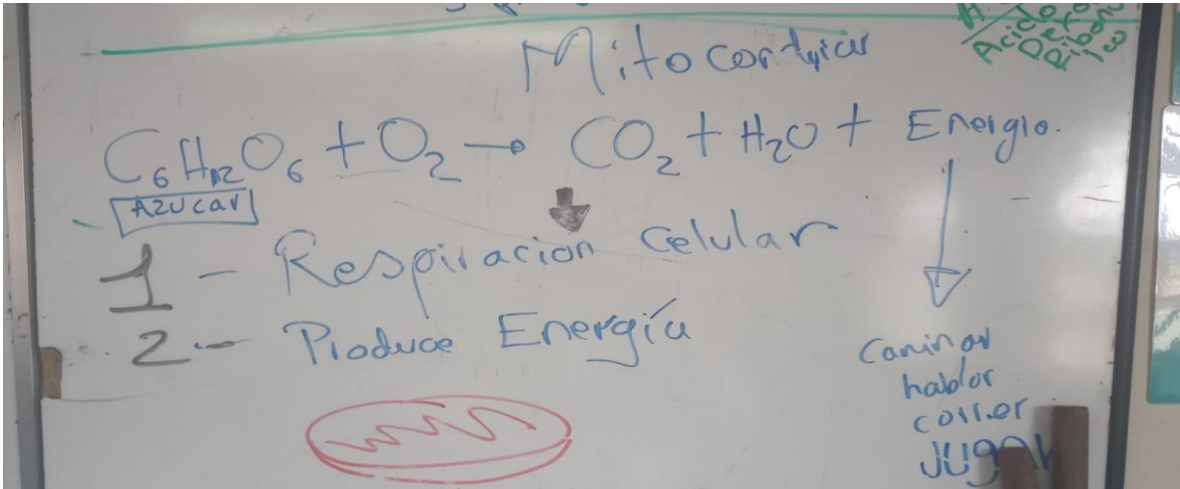 Mitocondrias
Acido
C₆H₁₂O₆ + O₂ → CO₂ + H₂O + Energia.
Azucar
1 - Respiracion Celular
2 - Produce Energía
Caminar
hablar
correr
JUGAR